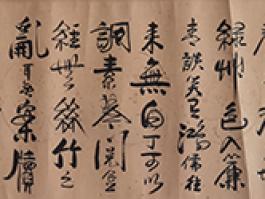 緑艸色入簾
青談笑有鴻儒往
来無白丁可以
調素琴閱金
經無絲竹之
亂耳無案牘